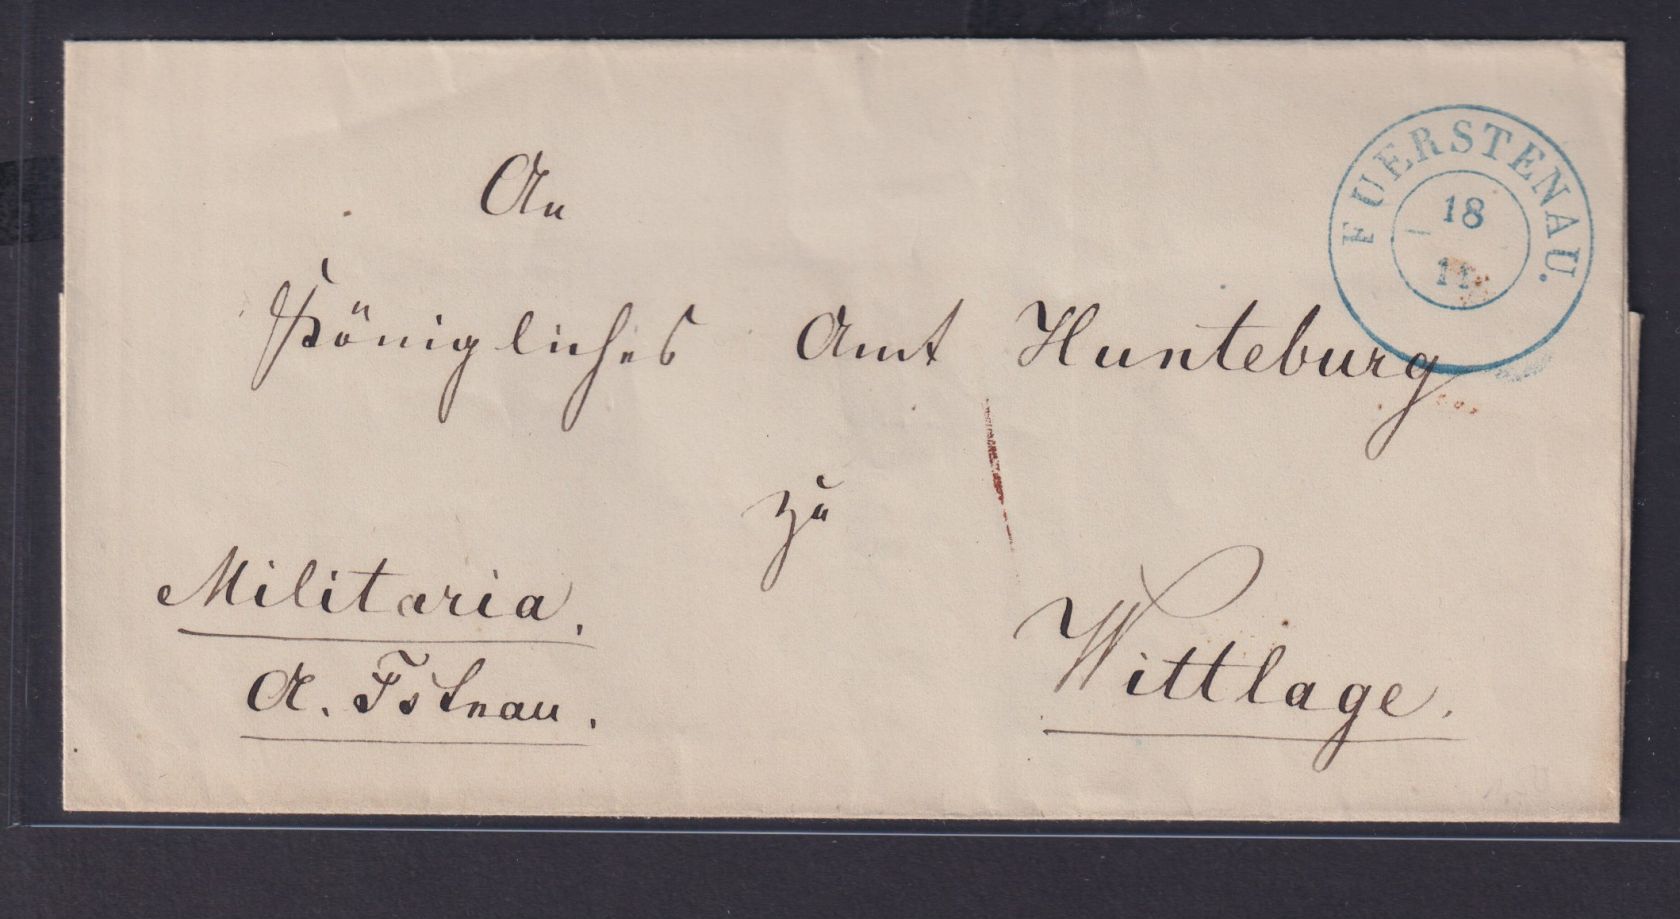 FUERSTENAU.
18
11
An
Königliches Amt Hunteburg
zu
Wittlage.
Militaria.
A. Fstnau.